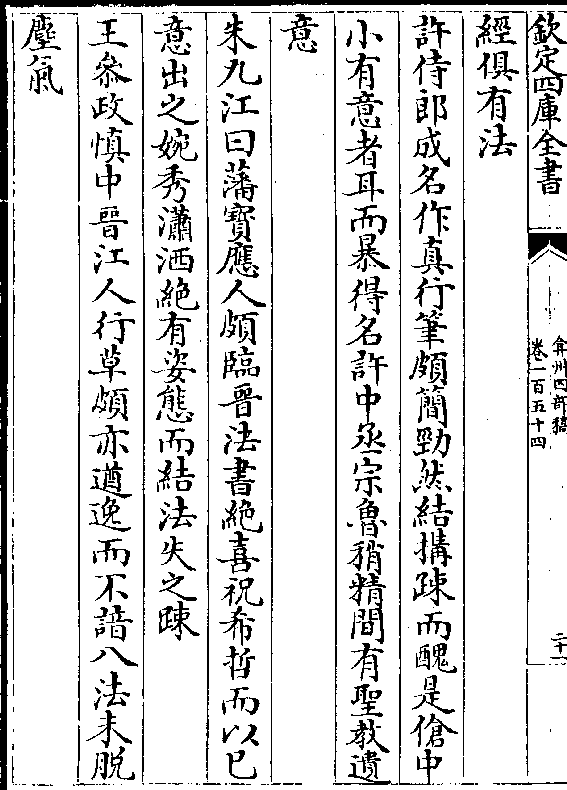 欽定四庫全書
弇州四部稿
卷一百五十四
二十一
經俱有法
許侍郎成名作真行筆頗簡勁然結搆踈而醜是傖中
小有意者耳而暴得名許中丞宗魯稍精間有聖教遺
意
朱九江曰藩寳應人頗臨晉法書絶喜祝希哲而以已
意出之婉秀瀟洒絶有姿態而結法失之踈
王叅政慎中晉江人行草頗亦遒逸而不諳八法未脱
塵氣